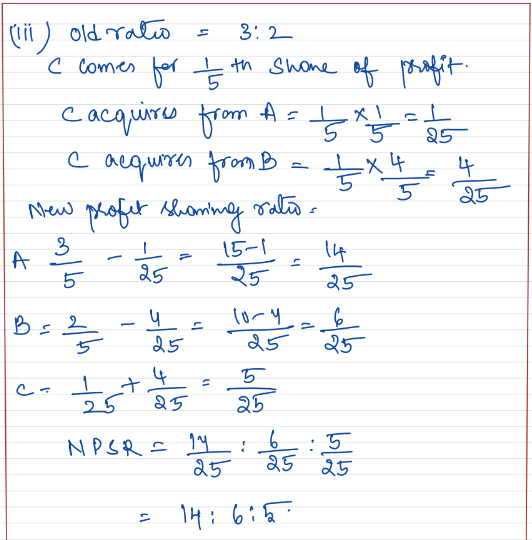 (iii) old ratio = 3:2
C comes for 1/5 th share of profit.
C acquires from A = 1/5 × 1/5 = 1/25
C acquires from B = 1/5 × 4/5 = 4/25
New profit sharing ratio =
A 3/5 - 1/25 = 15-1/25 = 14/25
B = 2/5 - 4/25 = 10-4/25 = 6/25
C = 1/25 + 4/25 = 5/25
NPSR = 14/25 : 6/25 : 5/25
= 14 : 6 : 5.